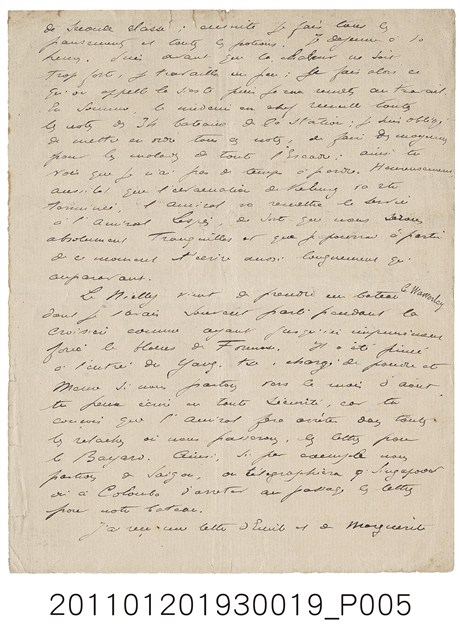 de seconde classe ; ensuite je fais tous les
pansements et toutes les potions. Je déjeune à 10
heures. Puis avant que la chaleur ne soit
trop forte, je travaille un peu ; je fais alors ce
qu'on appelle la sieste puis je me remets au travail.
En somme le médecin en chef recueille toutes
les notes des 34 bateaux de la station ; je suis obligé
de mettre en ordre tous ces notes, de faire des moyennes
pour les malades de toute l'Escadre ; ainsi tu
vois que je n'ai pas de temps à perdre. Heureusement
aussitôt que l'évacuation de Kelung va être
terminée, l'amiral va remettre le service
à l'amiral Lespès, de sorte que nous serons
absolument tranquilles et que je pourrai à partir
de ce moment t'écrire aussi longuement qu'
auparavant.
Le Nielly vient de prendre un bateau le Waverley
dont je t'avais souvent parlé pendant la
croisière comme ayant jusqu'ici
forcé le blocus de Formose. Il a été pincé
à l'entrée du Yang. tse. chargé de poudre et
Même si nous partons vers le mois d'août
tu peux écrire en toute sécurité, car tu
conçois que l'amiral fera arrêter dans toutes
les relâches où nous passerons, les lettres pour
le Bayard. Ainsi, si par exemple nous
partions de Saïgon, on télégraphiera à Singapoor
ou à Colombo d'arrêter au passage les lettres
pour notre bateau.
J'ai reçu une lettre d'Emile et de Marguerite
201101201930019_P005